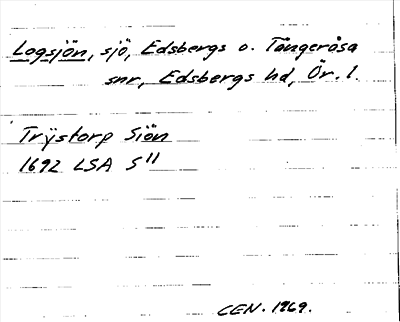 Logsjön, sjö, Edsbergs o. Tångeråsa
snr, Edsbergs hd, Ör. l.
Trÿstorp Siön
1692 LSA S11
CEN. 1969.